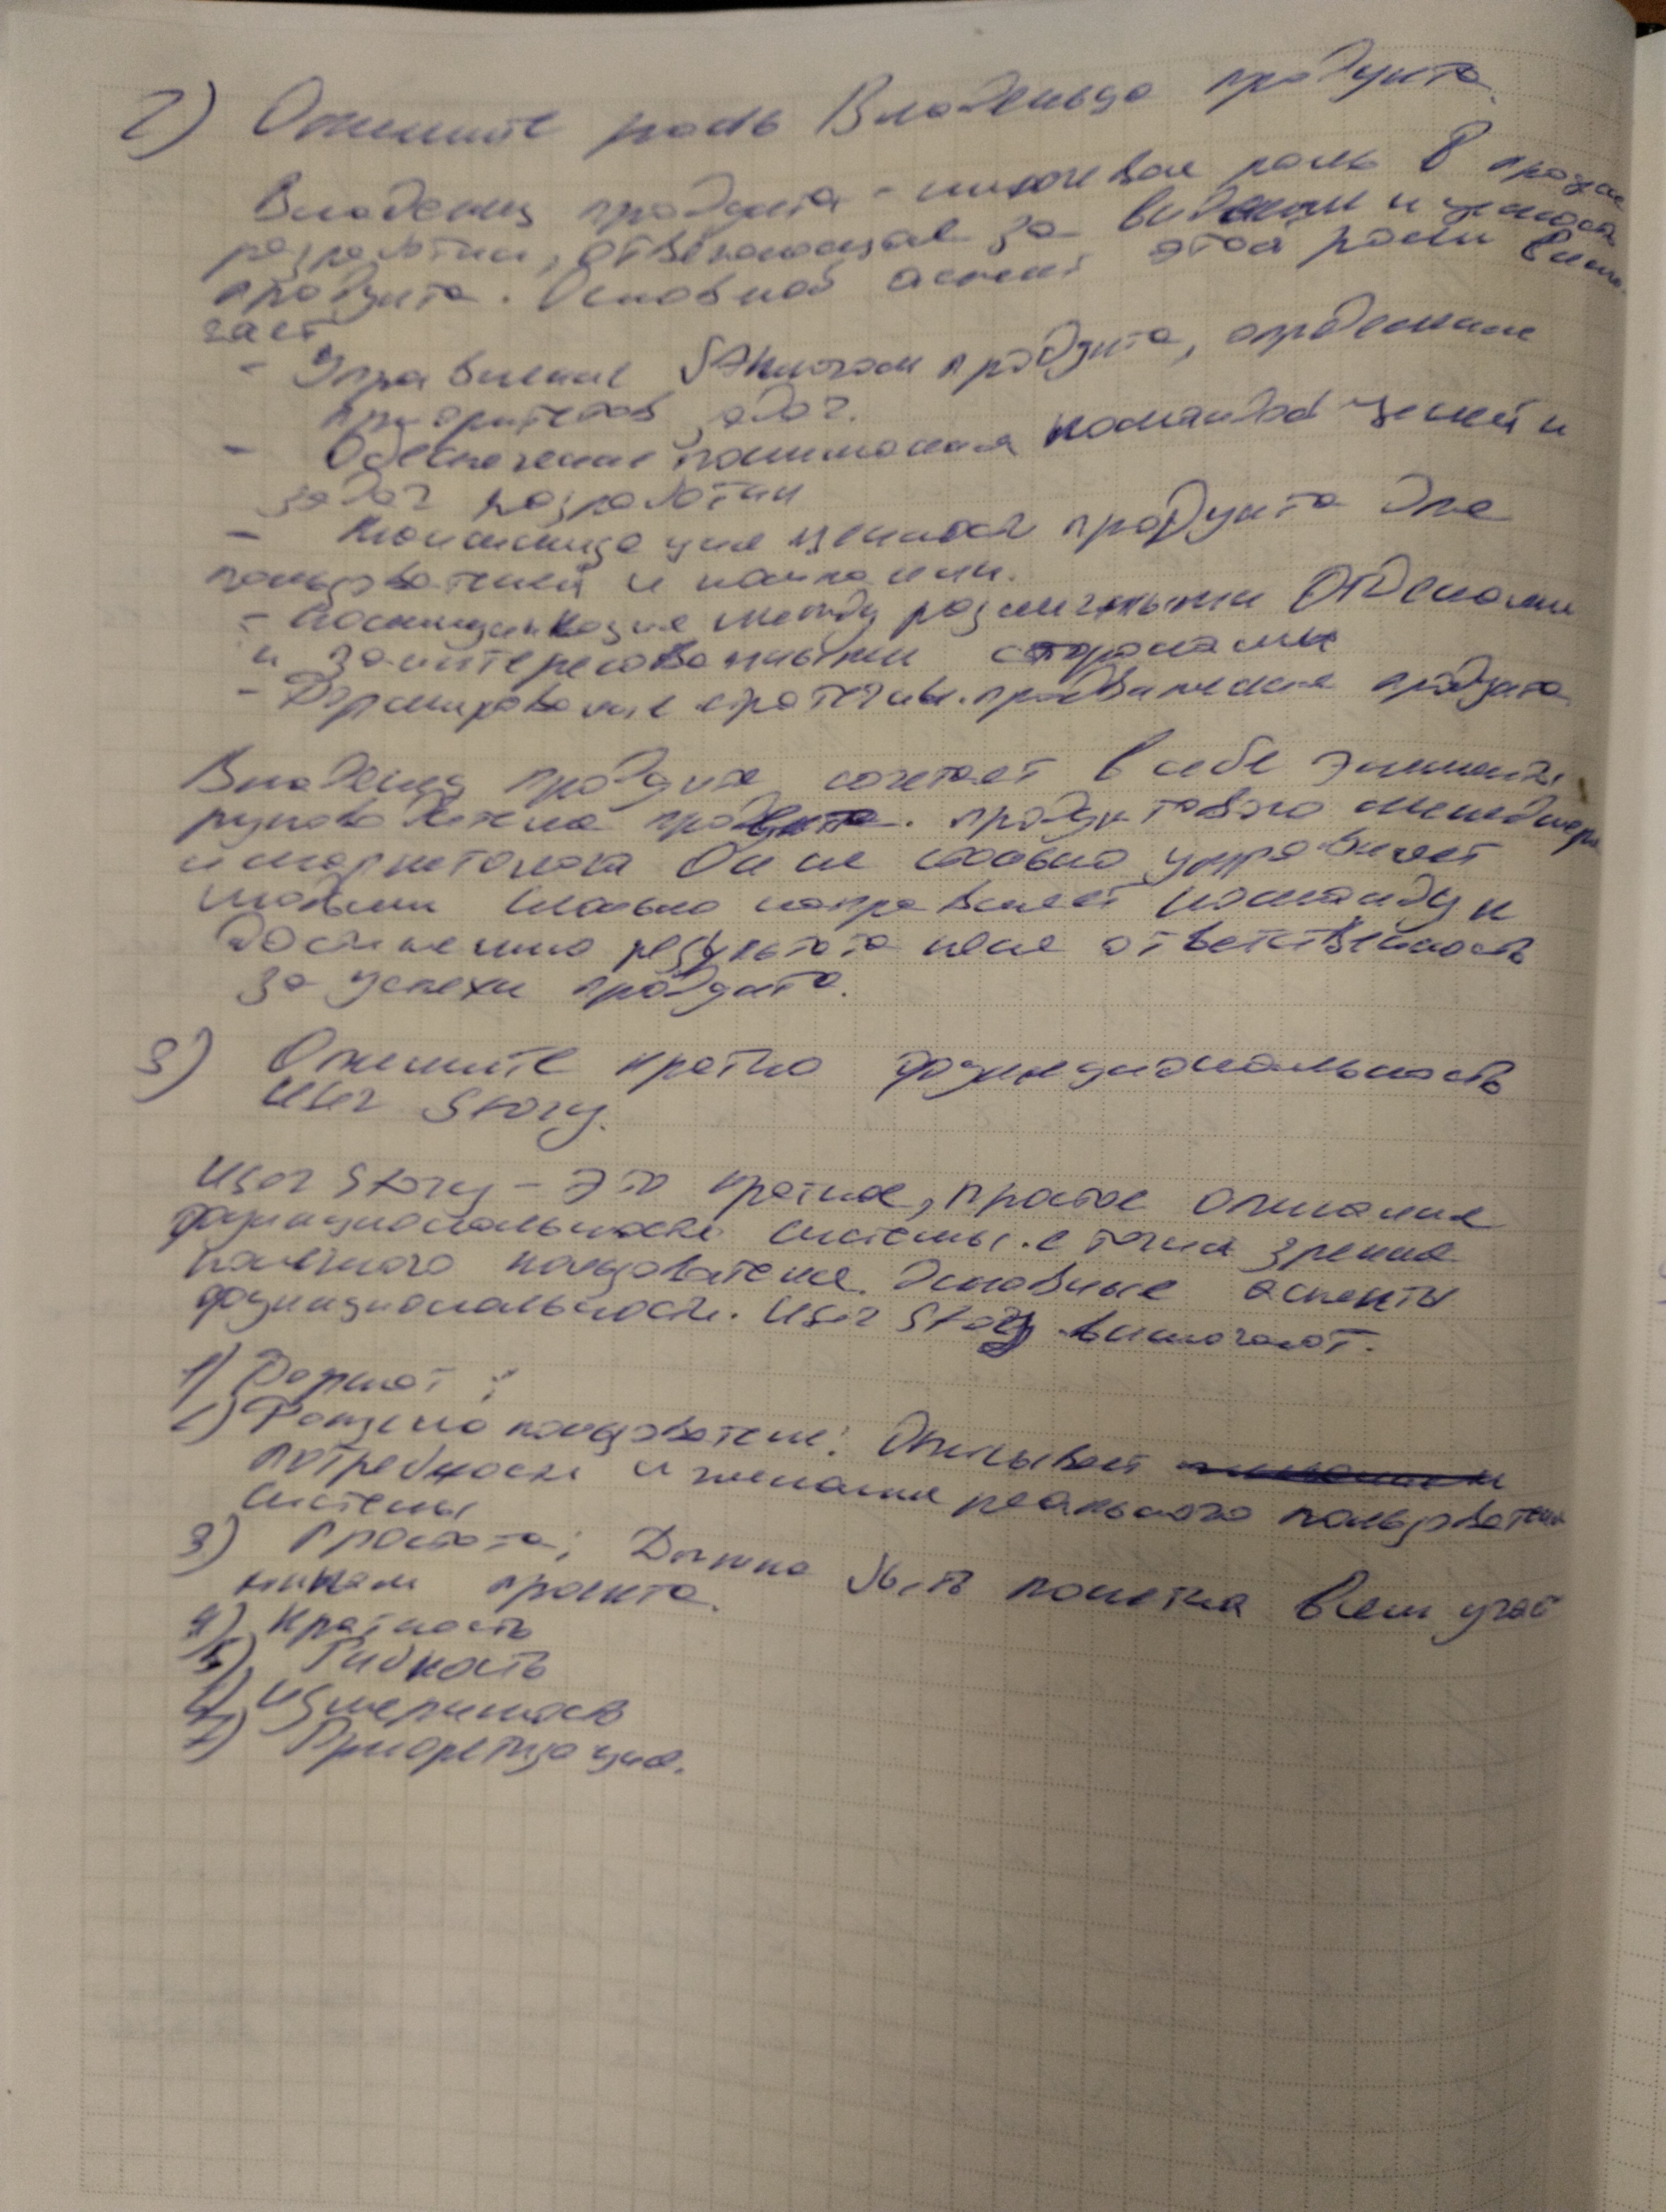 2) Опишите роль Владельца продукта.
Владелец продукта - ключевая роль в процессе
разработки, отвечающая за видение и ценность
продукта. Основной аспект этой роли включа
ает
- Управление бэклогом продукта, определение
приоритетов задач.
- Обеспечение понимания командой целей и
задач разработки
- Максимизация ценности продукта для
пользователей и компании.
- Коммуникация между различными отделами
и заинтересованными сторонами
- Формирование стратегии продвижения продукта
Владелец продукта сочетает в себе элементы
руководителя продукта. продуктового менеджера
и маркетолога Он не столько управляет
людьми сколько направляет команду к
достижению результата неся ответственность
за успехи продукта.
3) Опишите кратко функциональность
User Story.
User Story - это краткое, простое описание
функциональности системы с точки зрения
конечного пользователя. Основные аспекты
функциональности. User Story включают.
1) Формат:
2) пользователя: Описывает
потребности и желания реального пользователя
системы
3) Простота: Должна быть понятна всем участ
никам проекта.
4) Краткость
5) Гибкость
6) Измеримость
7) Приоретизация.